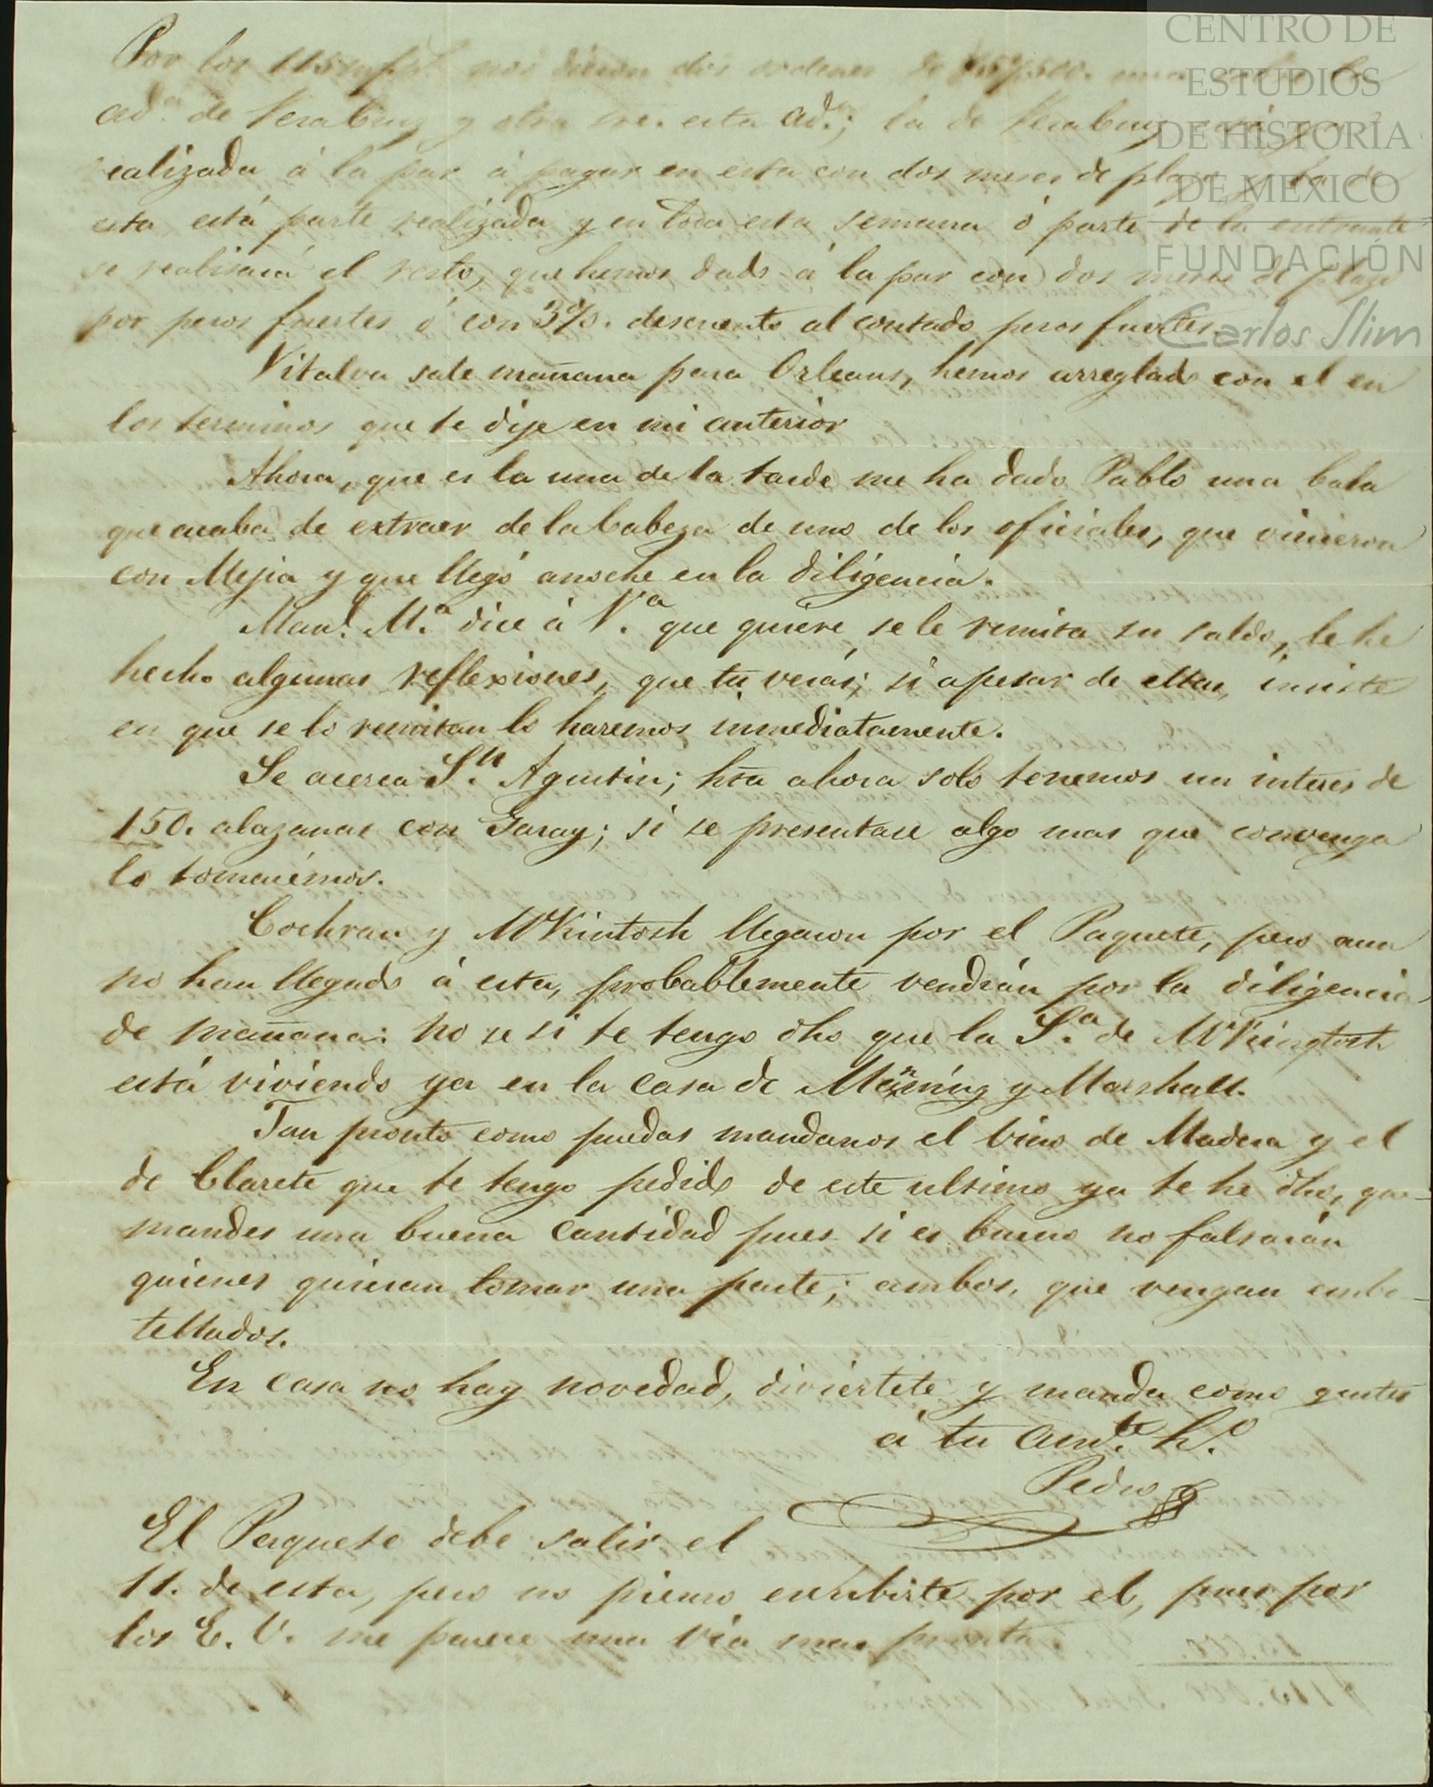 CENTRO DE
ESTUDIOS
DE HISTORIA
DE MEXICO
FUNDACIÓN
Carlos Slim
Por los 115 nos dieron dos ordenes de una
ad.ⁿ de Verabruz y otra sre. esta ad.ⁿ; la de Verabruz
realizada á la par á pagar en esta con dos meses de plazo
esta está parte realizada y en toda esta semana ó parte de la entrante
se realisará el resto, que hemos dado á la par con dos meses de plazo
por pesos fuertes ó con 3%. descuento al contado pesos fuertes.
Vitalva sale mañana para Orleans, hemos arreglado con el en
los terminos que te dije en mi anterior
Ahora, que es la una de la tarde me ha dado Pablo una bala
que acaba de extraer de la Cabeza de uno de los oficiales, que vinieron
con Mejia y que llegó anoche en la diligencia.
Man.l M.a dice á V.a que quiere se le remita su saldo, le he
hecho algunas reflexiones, que tu verás; si apesar de ellas, insiste
en que se lo remitan lo haremos inmediatamente.
Se acerca S.n Agustin; hta ahora solo tenemos un interes de
150. alazanas con Garay; si se presentase algo mas que convenga
lo tomarémos.
Cochran y McKintosh llegaron por el Paquete, pero aun
no han llegado á esta, probablemente vendrán por la diligencia
de mañana: no se si te tengo dho que la S.a de McKingtosh
está viviendo ya en la casa de Manníng y Marshall.
Tan pronto como puedas mandanos el Vino de Madera y el
de Clarete que te tengo pedido de este ultimo ya te he dho, que
mandes una buena Cantidad pues si es bueno no faltarán
quienes quieran tomar una parte; ambos, que vengan embo-
tellados.
En casa no hay novedad, diviertete y manda como gustes
á tu am.te h.o
Pedro
El Paquete debe salir el
11. de esta, pero no pienso escribirte por el, pues por
los E. U. me parece una via mas pronta.